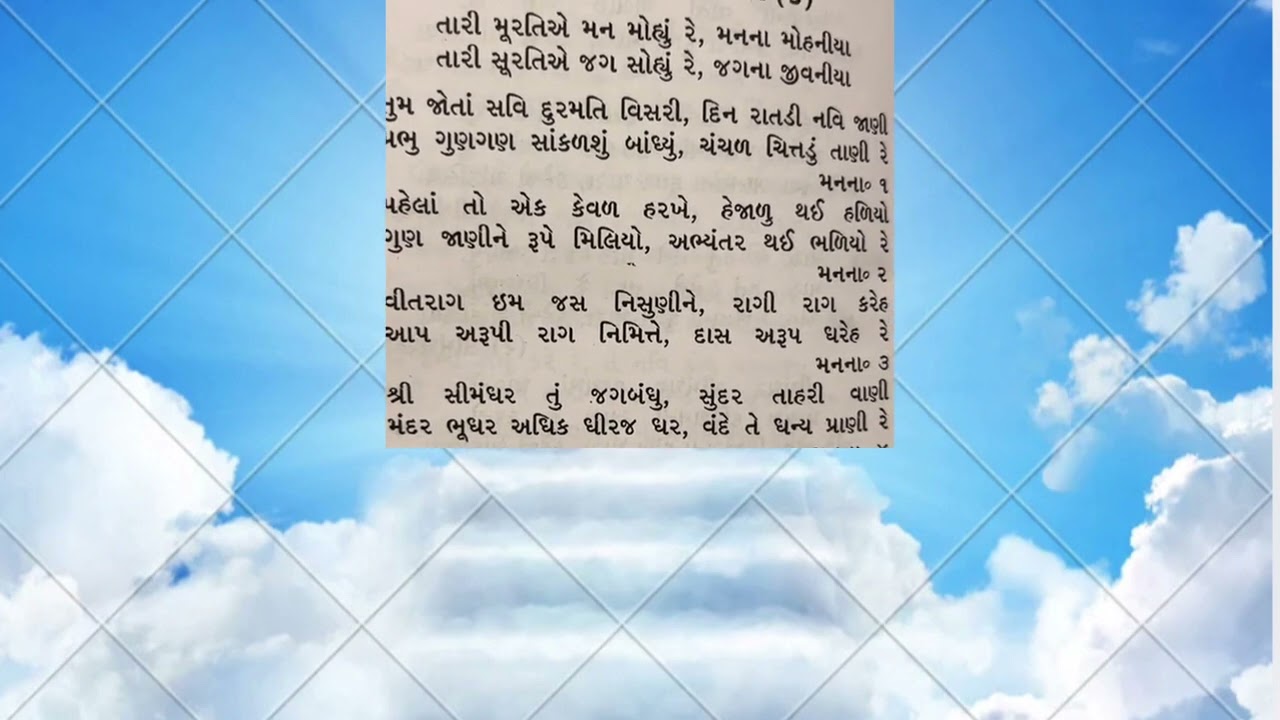 તારી મૂરતિએ મન મોહ્યું રે, મનના મોહનીયા
તારી સૂરતિએ જગ સોહ્યું રે, જગના જીવનીયા
તુમ જોતાં સવિ દુરમતિ વિસરી, દિન રાતડી નવિ જાણી
પ્રભુ ગુણગણ સાંકળશું બાંધ્યું, ચંચળ ચિત્તડું તાણી રે
મનના૦ ૧
પહેલાં તો એક કેવળ હરખે, હેજાળુ થઈ હળિયો
ગુણ જાણીને રૂપે મિલિયો, અભ્યંતર થઈ ભળિયો રે
મનના૦ ૨
વીતરાગ ઇમ જસ નિસુણીને, રાગી રાગ કરેહ
આપ અરૂપી રાગ નિમિત્તે, દાસ અરૂપ ધરેહ રે
મનના૦ ૩
શ્રી સીમંધર તું જગબંધુ, સુંદર તાહરી વાણી
મંદર ભૂધર અધિક ધીરજ ધર, વંદે તે ધન્ય પ્રાણી રે